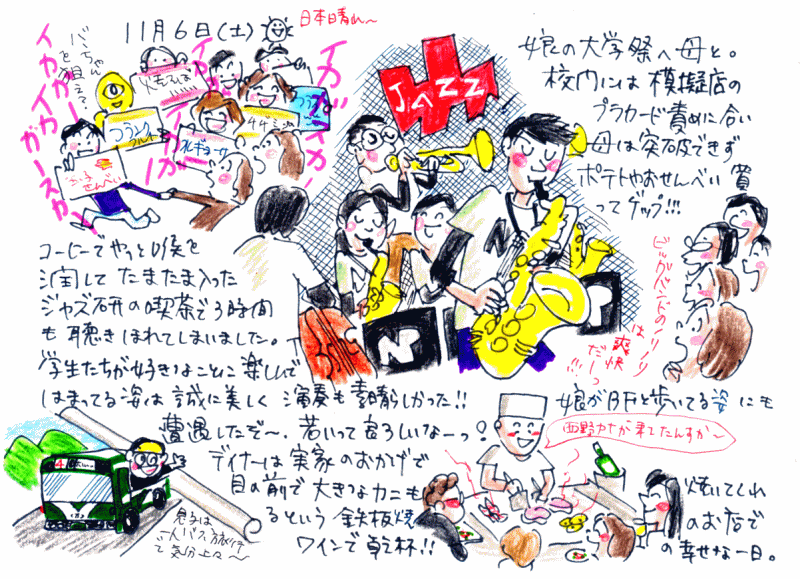 11月6日(土)
日本晴れ〜
イカイカガースカー
バーちゃんを狙え!
焼そば
フランクフルト
せんべい
イカガ〜
イカガー
JAZZ
娘の大学祭へ母と。
校内には模擬店の
プラカード責めに合い
母は突破できず
ポテトやおせんべい買
ってゲップ!!!
コーヒーでやっと喉を
潤してたまたま入った
ジャズ研の喫茶で3時間
も聴きほれてしまいました。
学生たちが好きなことに楽しんで
はまってる姿は誠に美しく演奏も素晴らしかった!!
N
N
ビッグバンドのノリノリ
は爽快
だーっ
!!!
娘がBFと歩いてる姿にも
遭遇したぞ〜、若いって良ろしいなーっ!
西野カナが来てたんすか〜
ディナーは実家のおかげで
目の前で大きなカニも焼いてくれ
るという鉄板焼のお店で
ワインで乾杯!!の幸せな一日。
4
息子は
一人バス旅行
で気分上々〜